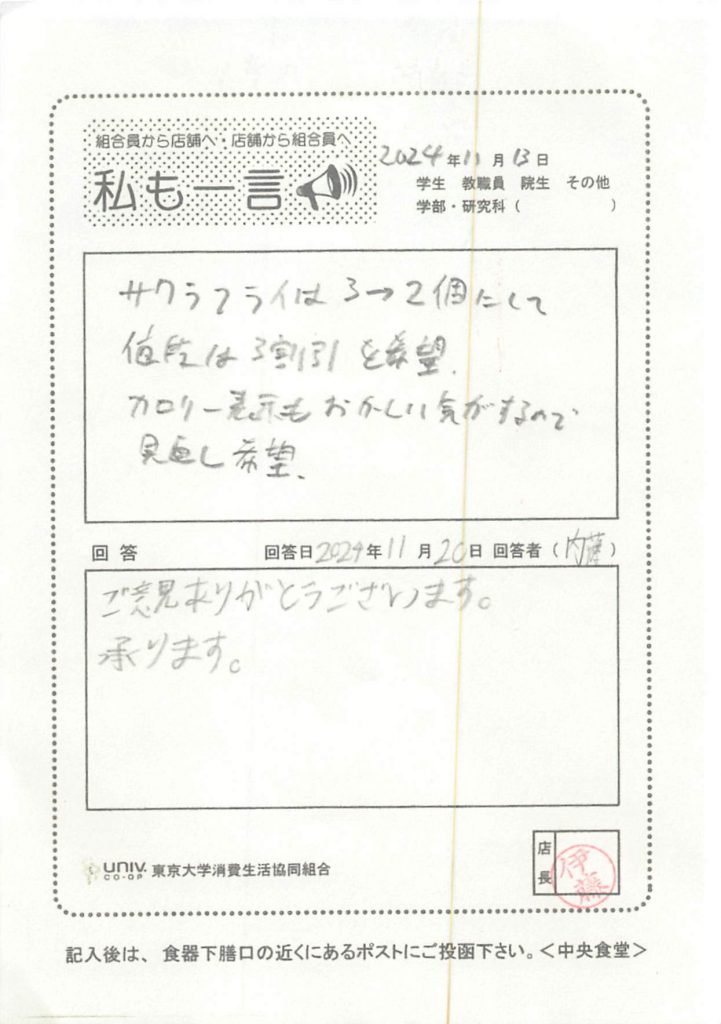 組合員から店舗へ・店舗から組合員へ
私も一言
2024年11月13日
学生 教職員 院生 その他
学部・研究科( )
サクラフライは3→2個にして
値段は3割引を希望.
カロリー表示もおかしい気がするので
見直し希望、
回答 回答日2024年11月20日 回答者(内藤)
ご意見ありがとうございます。
承ります。
UNIV. CO-OP 東京大学消費生活協同組合
店長 伊藤
記入後は、食器下膳口の近くにあるポストにご投函下さい。<中央食堂>